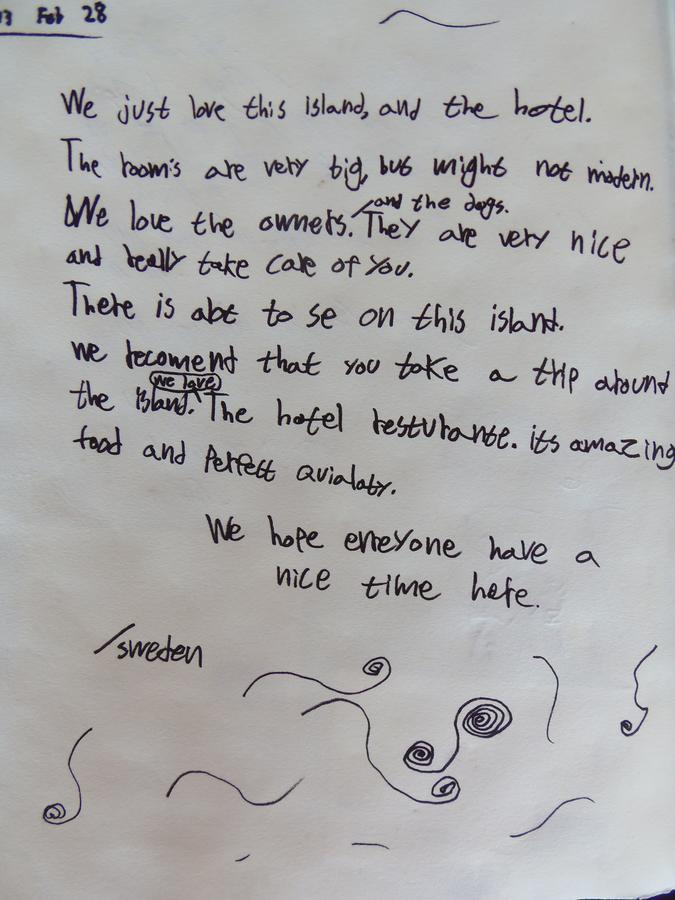 13 Feb 28
We just love this island, and the hotel.
The room's are very big, but might not modern.
and the dogs.
We love the owners. They are very nice
and really take care of you.
There is abt to se on this island.
we recoment that you take a trip around
we love
the island. The hotel resturante. its amazing
food and perfect quialaty.
We hope evreyone have a
nice time here.
/sweden